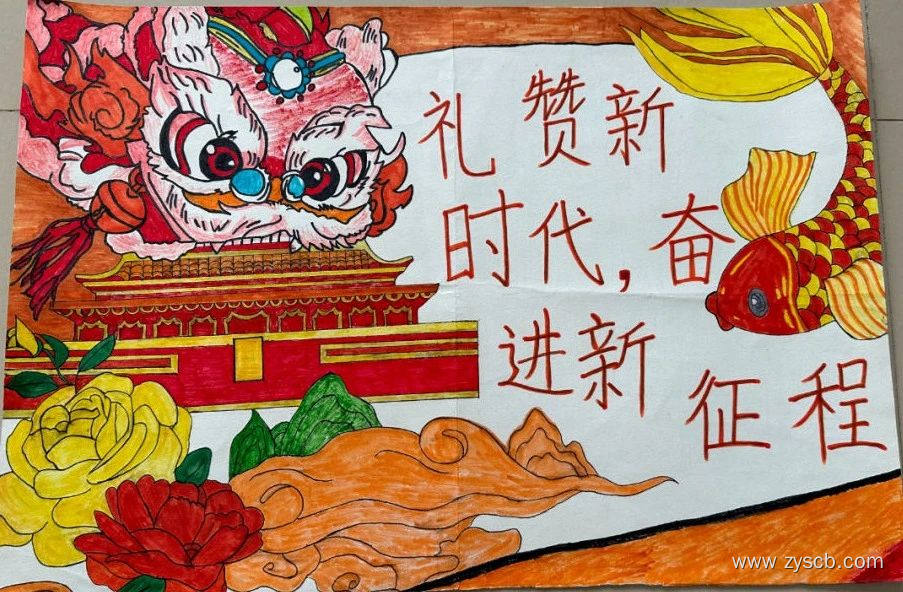 礼赞新
时代，奋
进新
征程
www zyscb.com